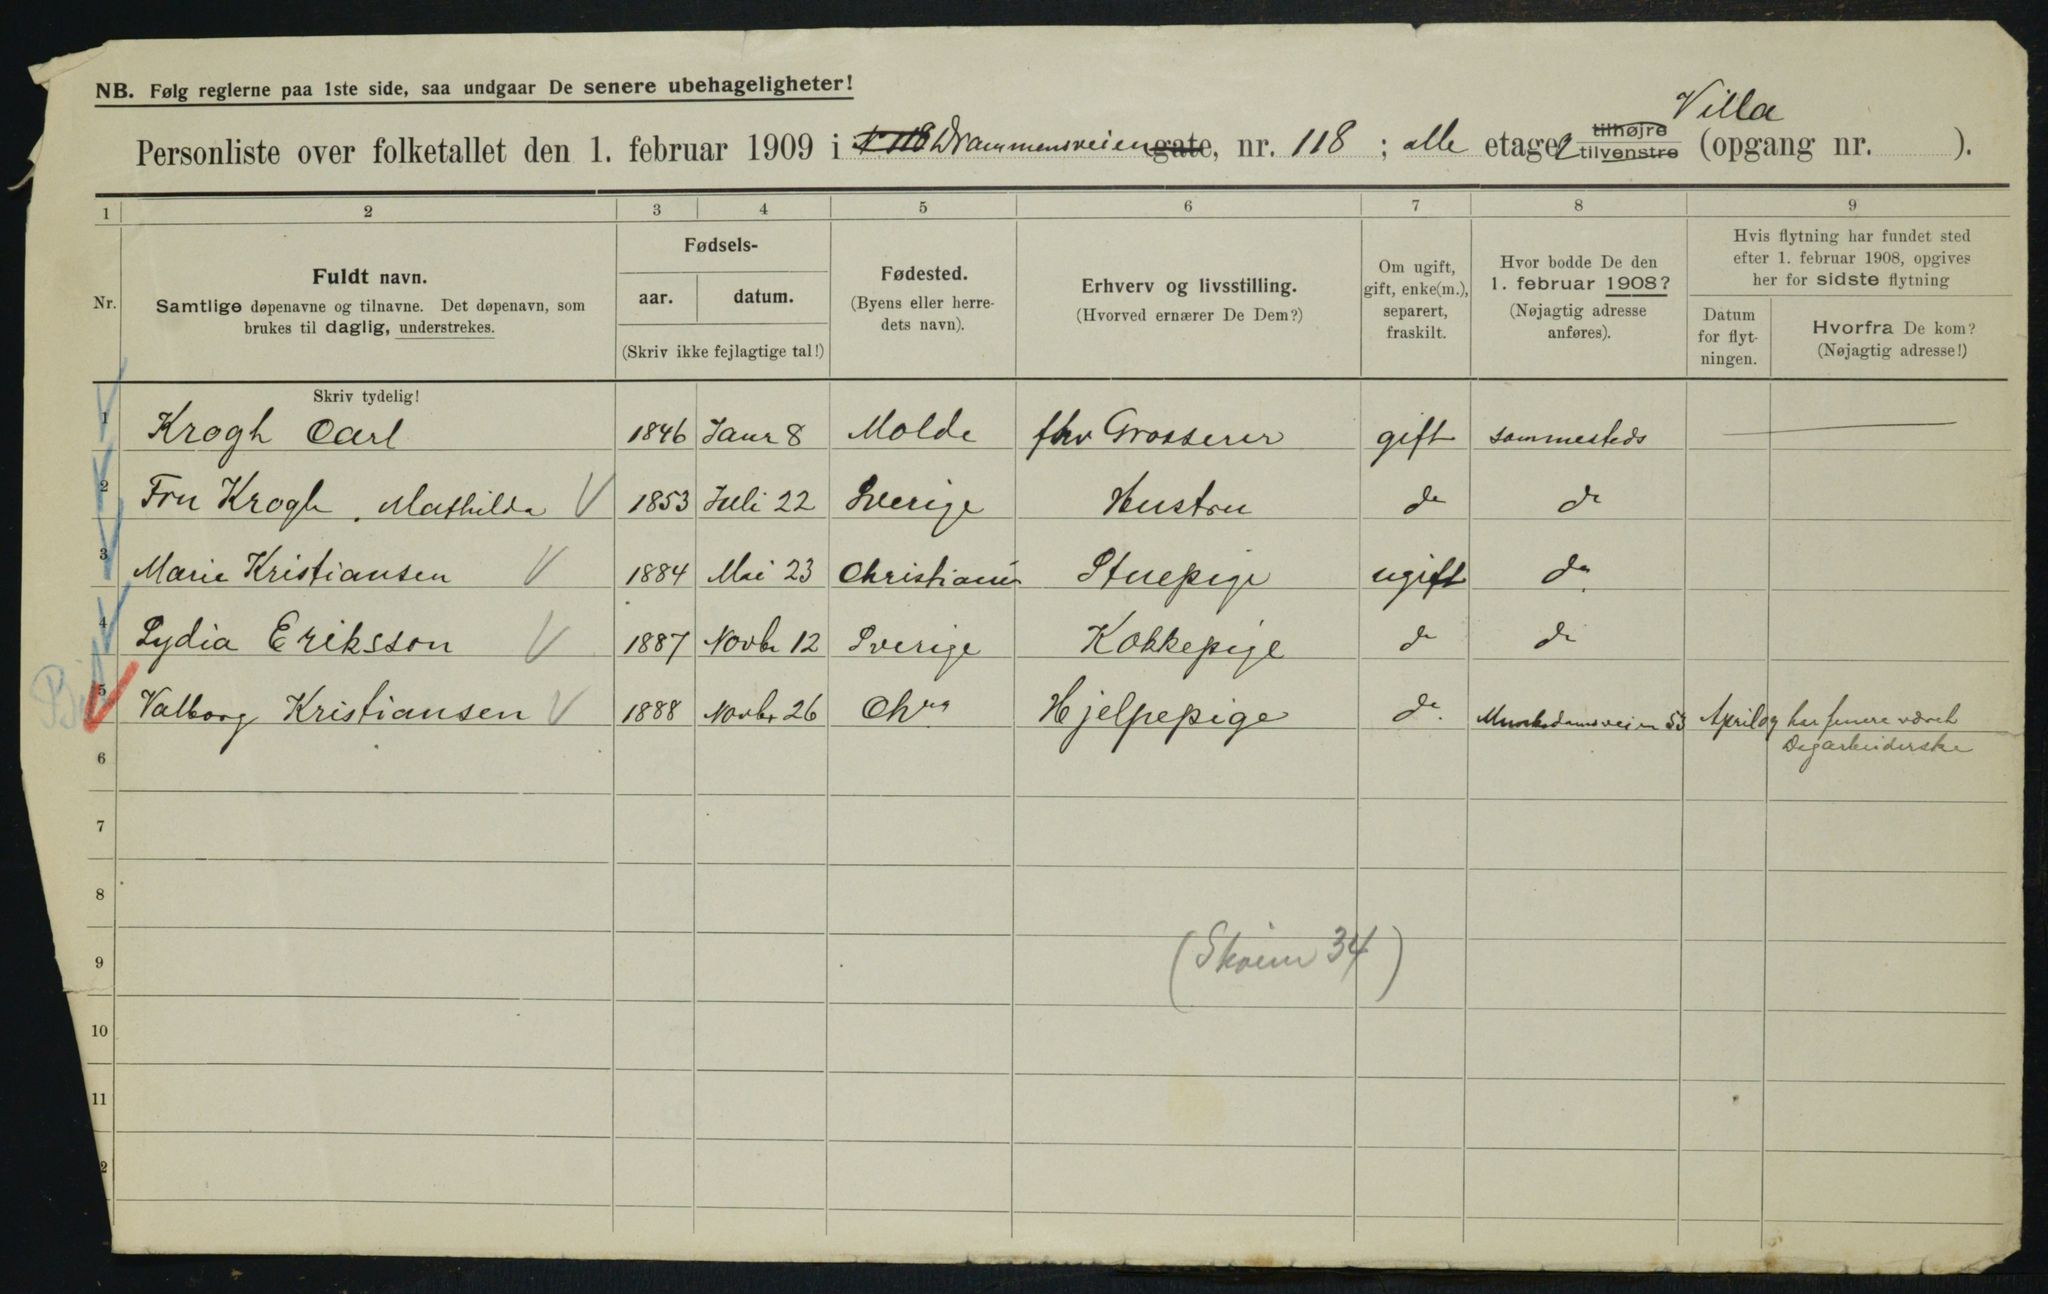 NB. Følg reglerne paa 1ste side, saa undgaar De senere ubehageligheter!
Villa
Personliste over folketallet den 1. februar 1909 i Drammensveien gate, nr. 118 ; alle etage tilhøjre tilvenstre (opgang nr. ).
1 2 3 4 5 6 7 8 9
Nr.
Fuldt navn.
Samtlige døpenavne og tilnavne. Det døpenavn, som
brukes til daglig, understrekes.
Fødsels-
aar. datum.
(Skriv ikke fejlagtige tal!)
Fødested.
(Byens eller herre-
dets navn).
Erhverv og livsstilling.
(Hvorved ernærer De Dem?)
Om ugift,
gift, enke(m.),
separert,
fraskilt.
Hvor bodde De den
1. februar 1908?
(Nøjagtig adresse
anføres).
Hvis flytning har fundet sted
efter 1. februar 1908, opgives
her for sidste flytning
Datum
for flyt-
ningen.
Hvorfra De kom?
(Nøjagtig adresse!)
Skriv tydelig!
1 Krogh Carl 1846 Janr 8 Molde fhv Grosserer gift sammesteds
2 Fru Krogh, Mathilda 1853 Juli 22 Sverige Hustru do do
3 Marie Kristiansen 1884 Mai 23 Christiania Stuepige ugift do
4 Lydia Eriksson 1887 Novbr 12 Sverige Kokkepige do do
5 Valborg Kristiansen 1888 Novbr 26 Chra Hjelpepige do. Munkedamsveien 53 April 09 har senere været
Dagarbeiderske
6
7
8
9
(Skøien 34)
10
11
2